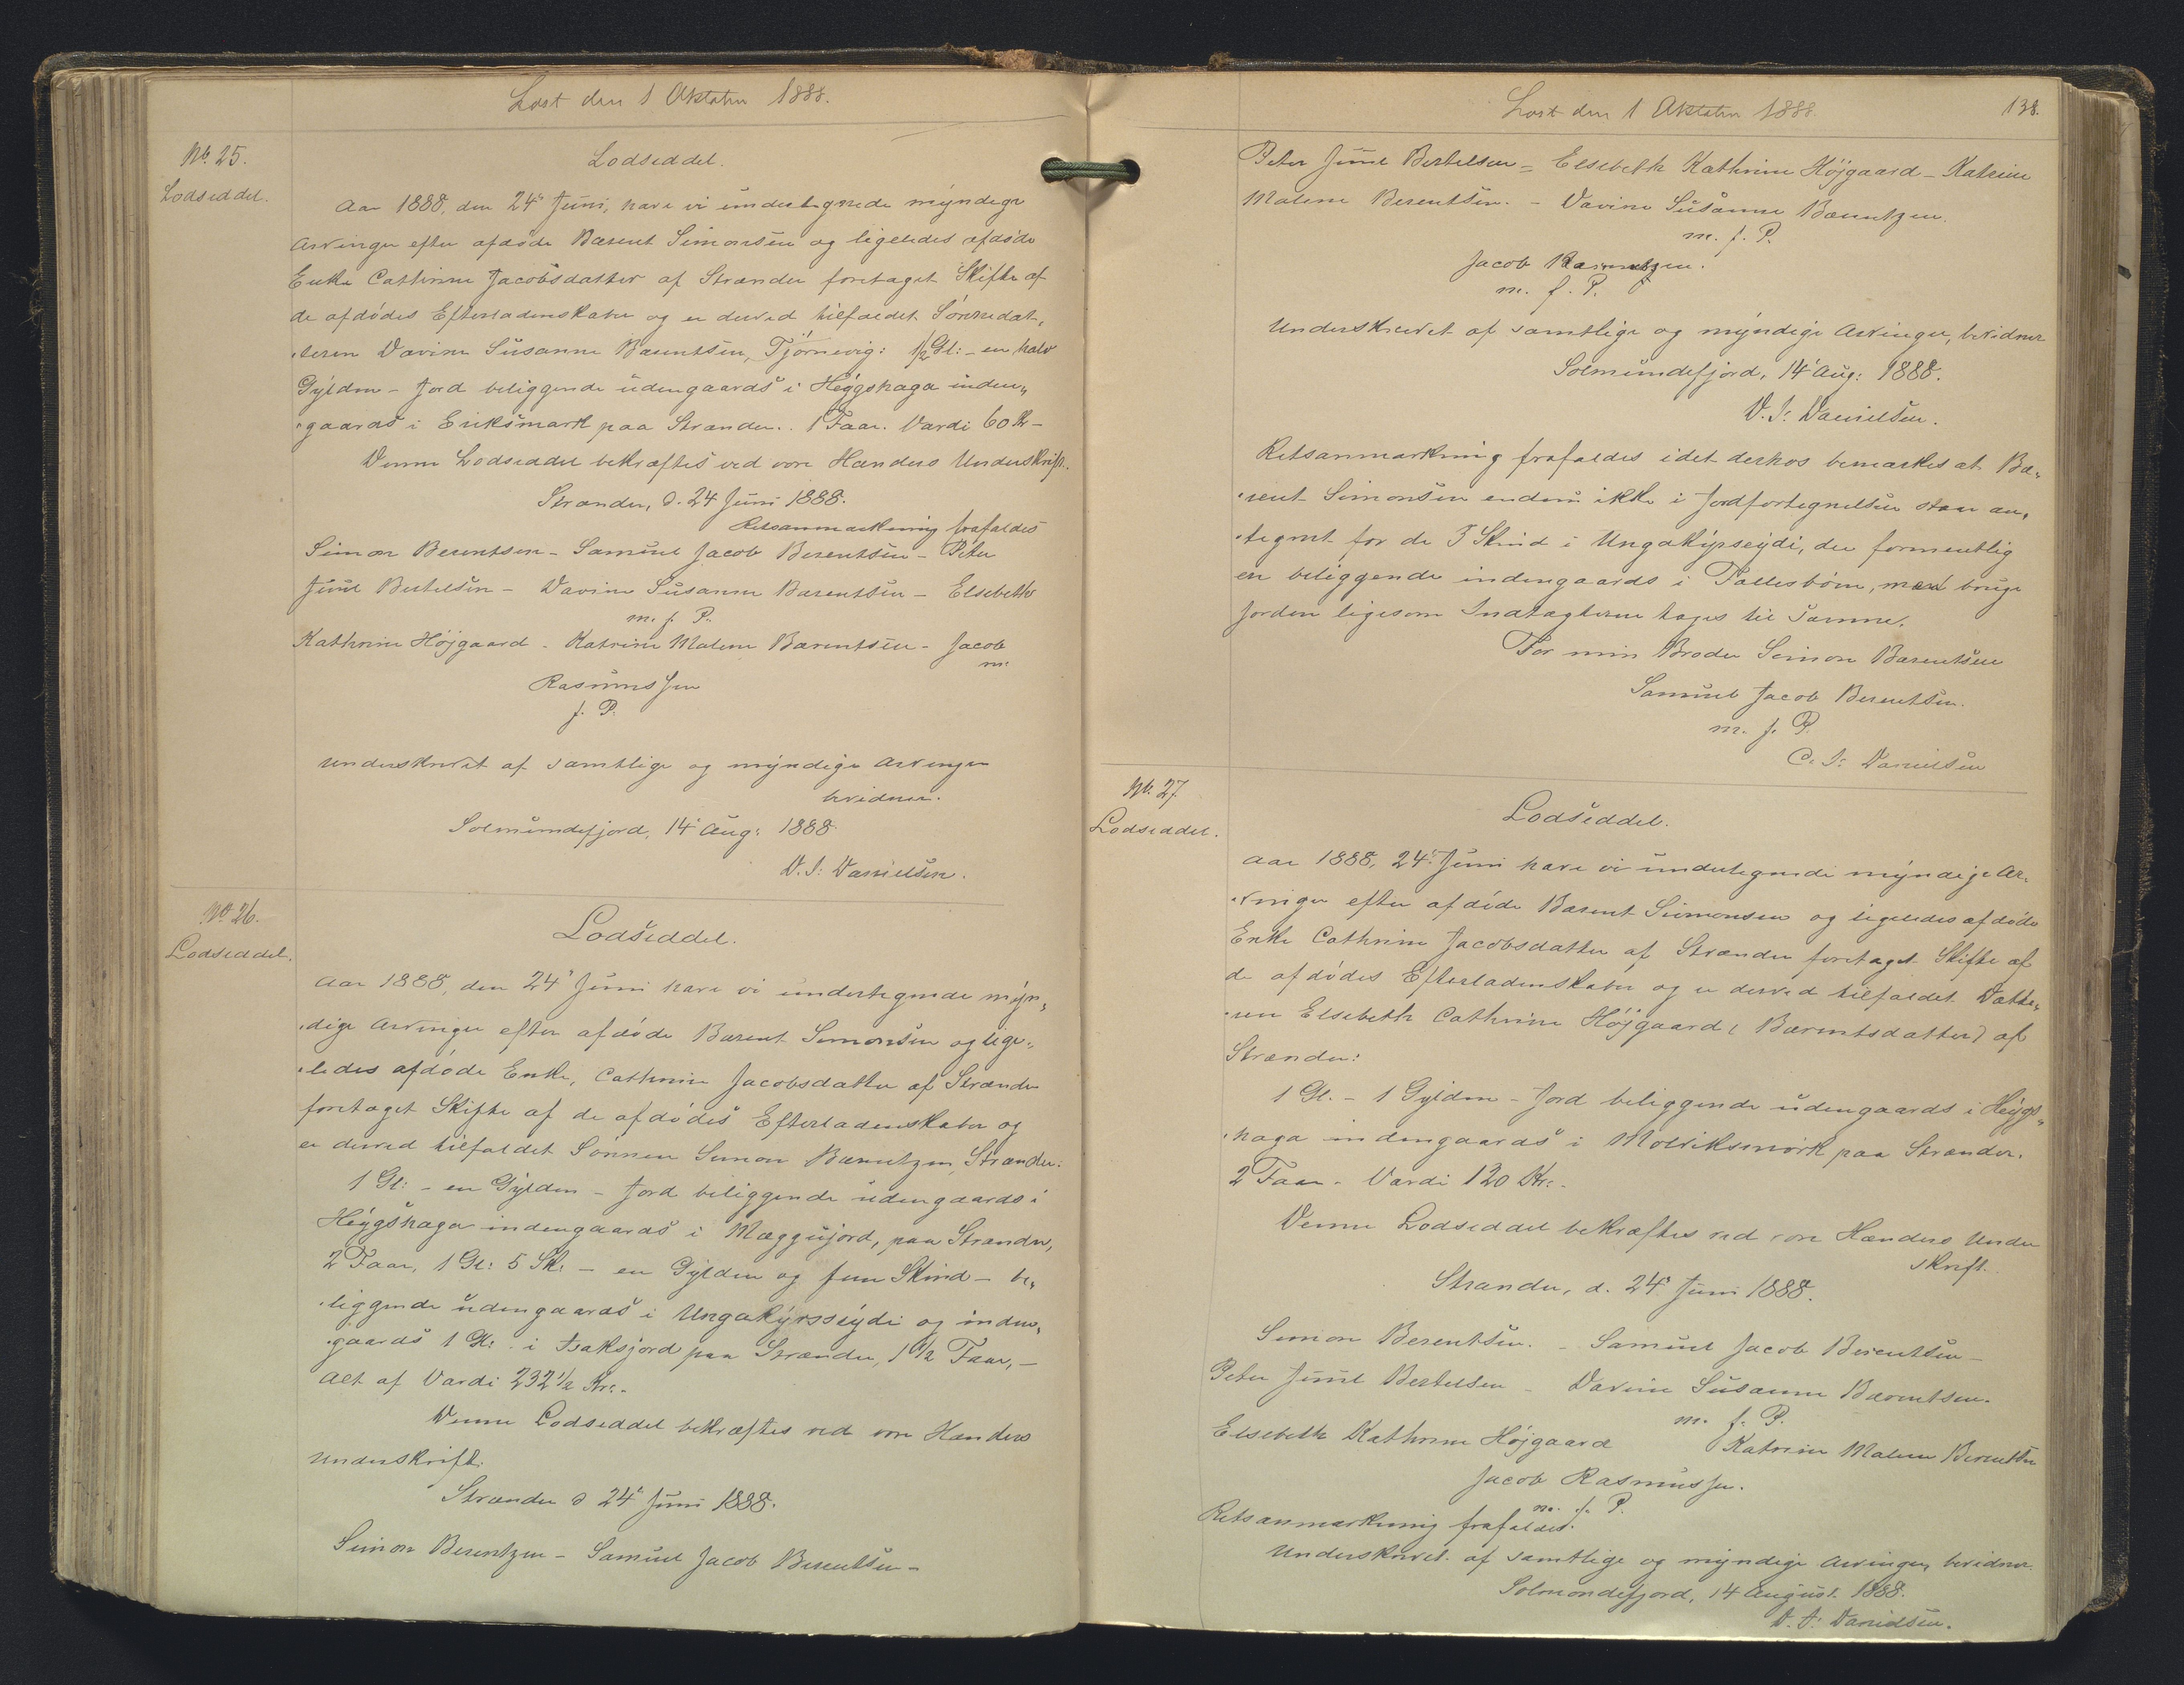 Læst den 1 Oktober 1888.
No. 25.
Lodseddel.
Lodseddel.
Aar 1888, den 24' Juni, have vi undertegnede myndige
Arvinger efter afdøde Barent Simonsen og ligeledes afdøde
Enke Cathrine Jacobsdatter af Strænder foretaget Skifte af
de afdødes Efterladenskaber og er derved tilfaldet Sønnedat-
teren Davine Susanne Barentsen, Tjørnevig: 1/2 Gl: - en halv
Gylden - Jord beliggende udengaards i Høygshaga inden-
gaards i Eriksmark paa Strænder. 1 Faar. Værdi 60 Kr -
Denne Lodseddel bekræftes ved vore Hænders Underskrift.
Strænder, d. 24 Juni 1888.
Retsanmærkning frafaldes
Simon Berentsen - Samuel Jacob Berentsen - Peter
Juul Bertelsen - Davine Susanne Barentsen - Elsebeth
m. f. P.
Kathrine Højgaard - Katrine Malene Barentsen - Jacob
m.
Rasmussen
f. P.
Underskrevet af samtlige og myndige Arvinger
bevidner.
Solmundefjord, 14' Aug: 1888.
D. J: Danielsen.
No 26.
Lodseddel.
Lodseddel.
Aar 1888, den 24' Juni have vi undertegnede myn-
dige Arvinger efter afdøde Barent Simonsen og lige-
ledes afdøde Enke, Cathrine Jacobsdatter af Strænder
foretaget Skifte af de afdødes Efterladenskaber og
er derved tilfaldet Sønnen Simon Barentzen, Strænder:
1 Gl: - en Gylden - Jord beliggende udengaards i
Høygshaga indengaards i Mæggujord, paa Strænder,
2 Faar, 1 Gl: 5 Sk: - en Gylden og fem Skind - be-
liggende udengaards i Ungakyrsseydi og inden-
gaards 1 Gl: i Isaksjord paa Strænder, 1 1/2 Faar, -
Alt af Værdi 232 1/2 Kr. -
Denne Lodseddel bekræftes ved vore Hænders
Underskrift.
Strænder d 24' Juni 1888.
Simon Berentzen - Samuel Jacob Berentsen -
Læst den 1 Oktober 1888.
138.
Peter Juul Bertelsen - Elsebeth Kathrine Højgaard - Katrine
Malene Berentsen. - Davine Susanne Barentzen.
m. f. P.
Jacob Rasmussen.
m. f. P.
Underskrevet af samtlige og myndige Arvinger, bevidner
Solmundefjord, 14' Aug: 1888.
D. J: Danielsen.
Retsanmærkning frafaldes idet derhos bemærkes at Ba-
rent Simonsen endnu ikke i Jordfortegnelsen staar an-
tegnet for de 3 Skind i Ungakyrseydi, der formentlig
er beliggende indengaards i Pallesbøur, men bruge
Jorden ligesom Indtægterne tages til Samme.
For min Broder Simon Barentsen
Samuel Jacob Berentsen.
m. f. P.
C. J: Danielsen
No. 27
Lodseddel.
Lodseddel.
Aar 1888, 24' Juni have vi undertegnede myndige Ar-
vinger efter afdøde Barent Simonsen og ligeledes afdøde
Enke Cathrine Jacobsdatter af Strænder foretaget Skifte af
de afdødes Efterladenskaber og er derved tilfaldet Datte-
ren Elsebeth Cathrine Højgaard (Barentsdatter) af
Strænder:
1 Gl. - 1 Gylden - Jord beliggende udengaards i Høygs-
haga indengaards i Molriksmörk paa Strænder.
2 Faar. Værdi 120 Kr: -
Denne Lodseddel bekræftes ved vore Hænders Under
skrift.
Strænder, d. 24' Juni 1888.
Simon Berentsen. - Samuel Jacob Berentsen -
Peter Juul Bertelsen - Davine Susanne Barentsen.
m. f. P.
Elsebeth Kathrine Højgaard Katrine Malene Berentsen
Jacob Rasmussen.
m. f. P.
Retsanmærkning frafaldes.
Underskrevet af samtlige og myndige Arvinger, bevidner
Solmondefjord, 14 August 1888.
D. J: Danielsen.